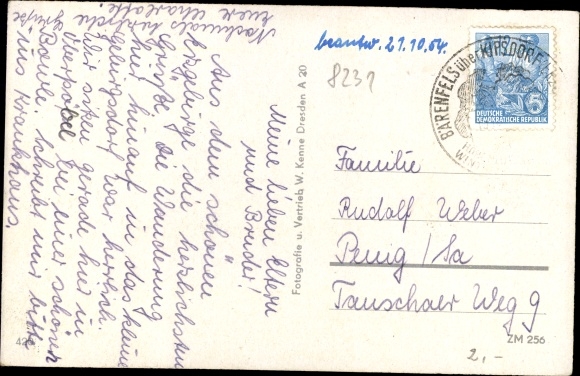 Meine lieben Eltern
und Brüder!
Aus dem schönen
Erzgebirge die herzlichsten
Grüße. Die Wanderung
hier hinauf in das kleine
Gebirgsdorf war herrlich.
Wir sitzen gerade hier in
Oberpöbel bei einer schönen
Bowle. Schreibt mir bitte
ins Krankhaus.
Nochmals herzliche
Eure Charlotte
beantw. 21.10.54.
8231
BÄRENFELS über KIPSDORF
DEUTSCHE
DEMOKRATISCHE REPUBLIK
5
Familie
Rudolf Weber
Penig / Sa
Tauschaer Weg 9
Fotografie u. Vertrieb W. Kenne Dresden A 20
ZM 256
2,-